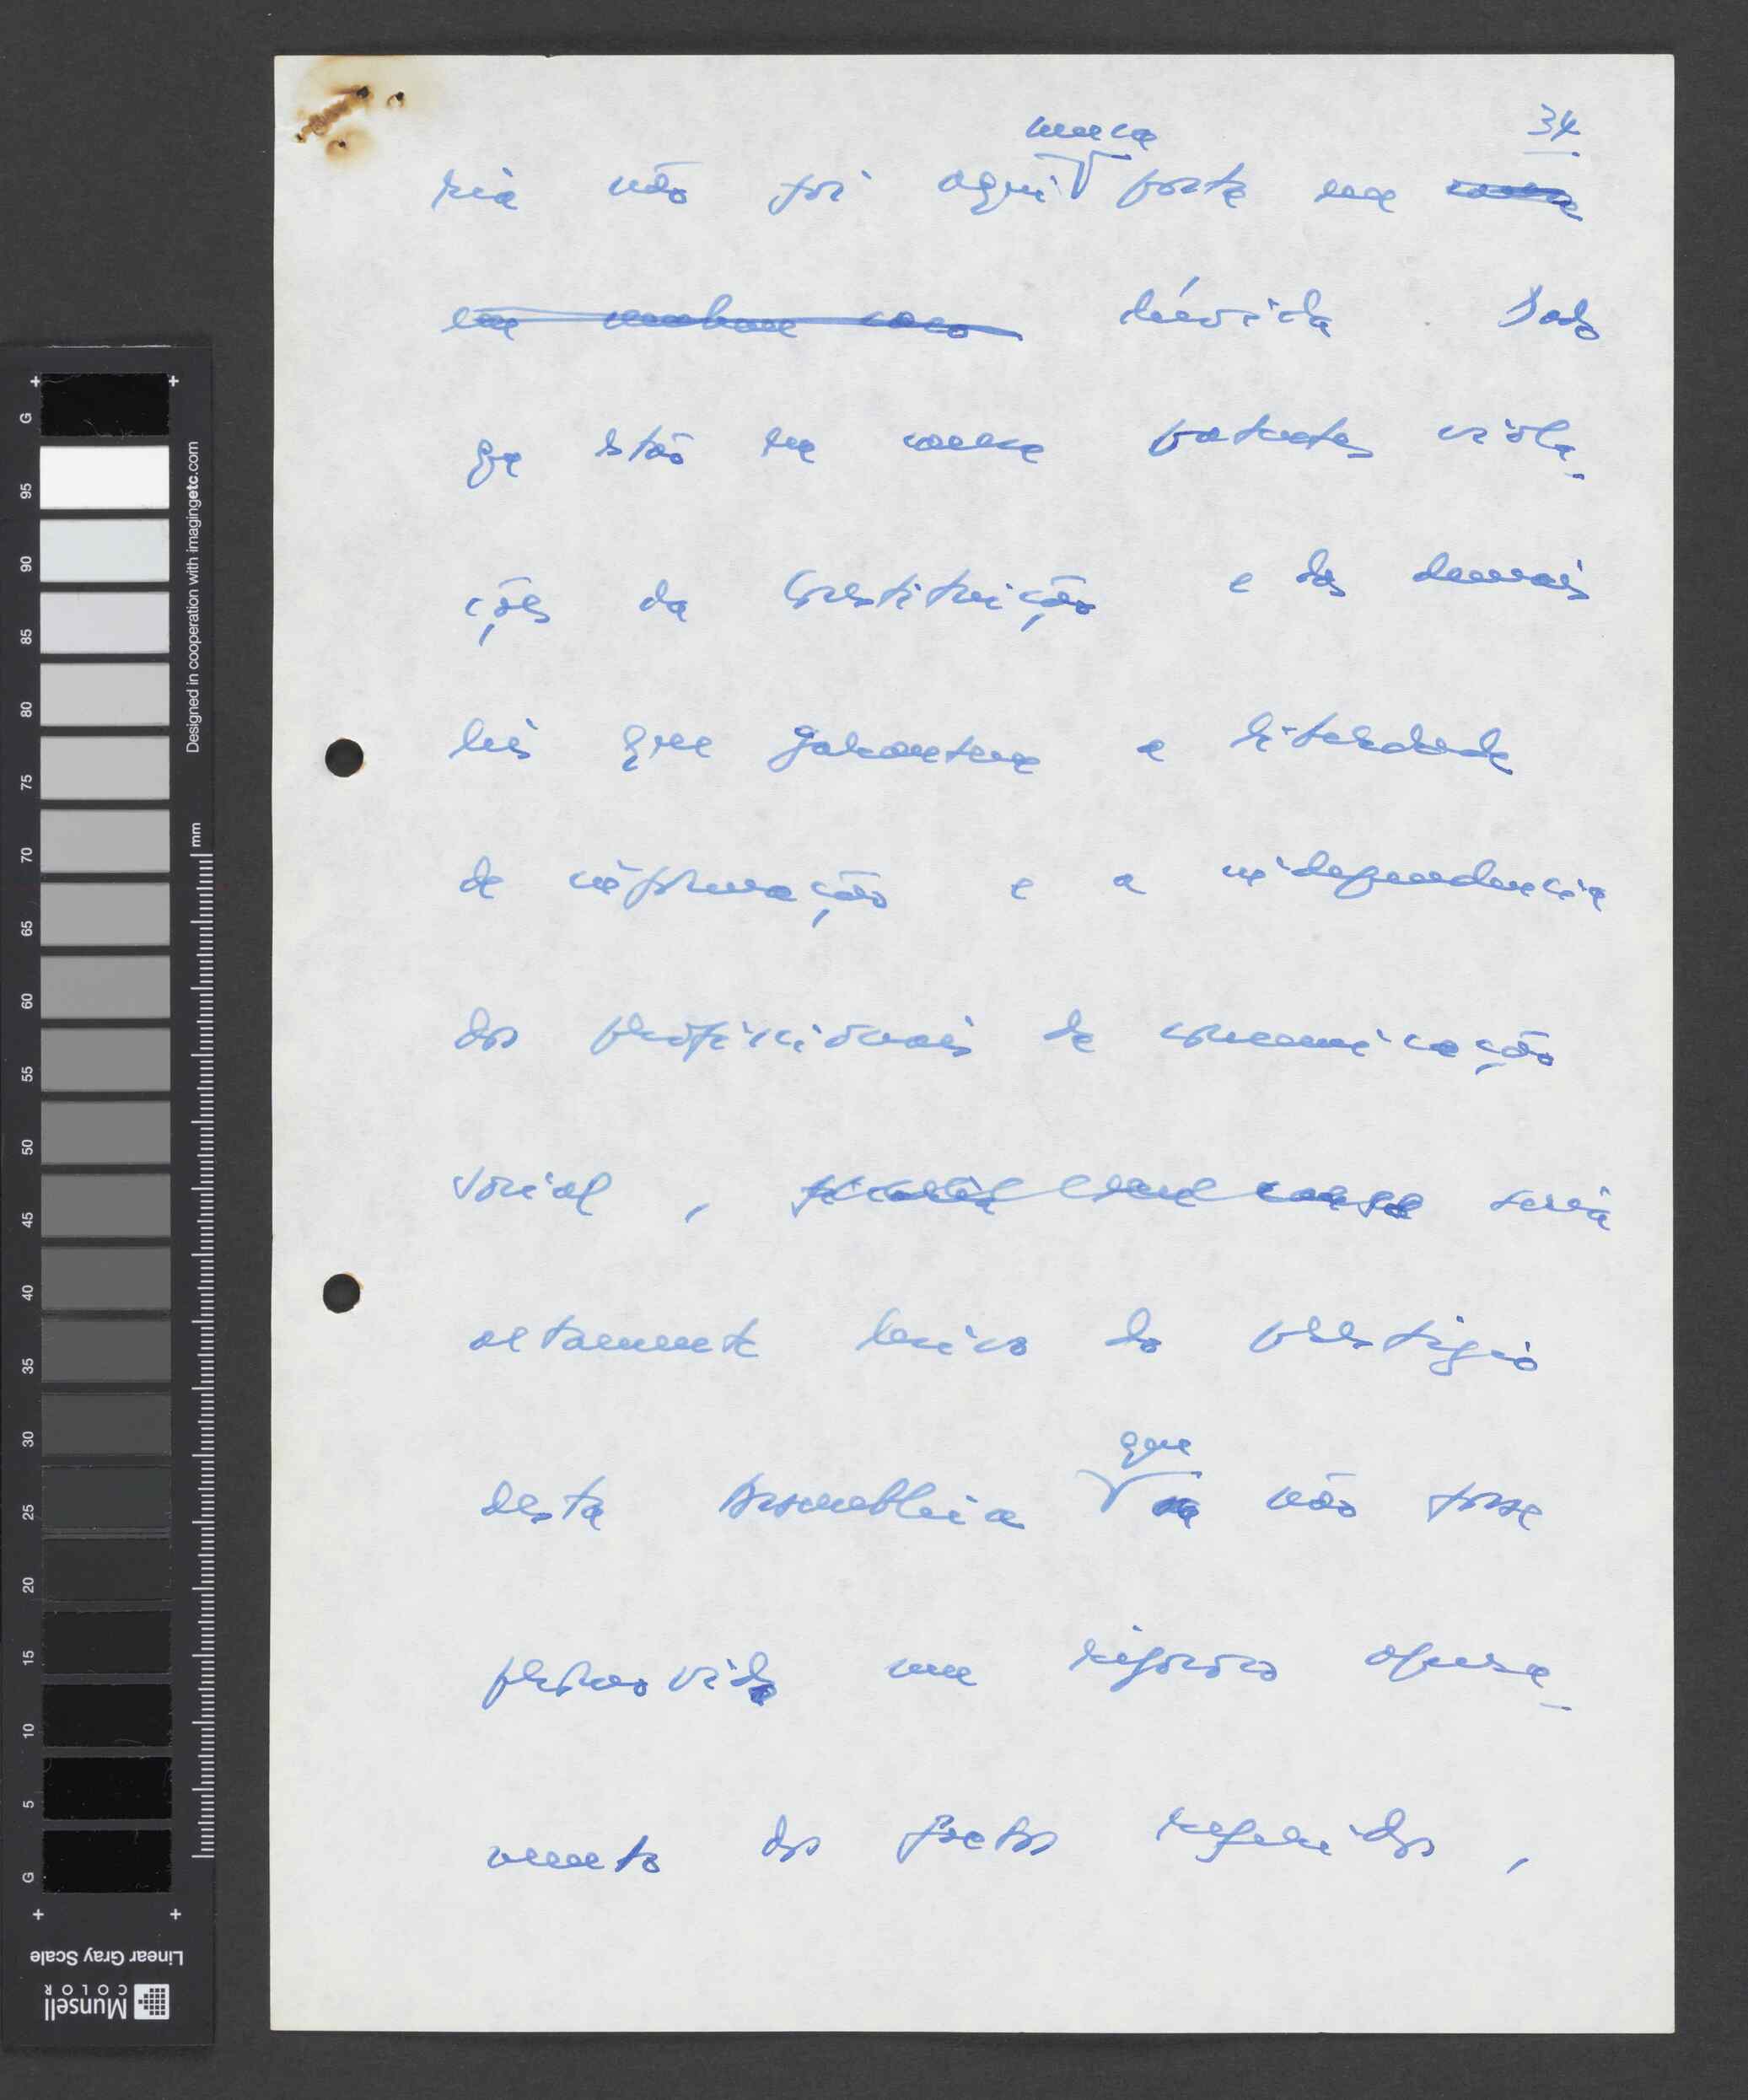 34
nunca
ria não foi aqui posta em
dúvida. Dado
que estão em causa patentes viola-
ções da Constituição e das demais
leis que garantem a liberdade
de informação e a independência
dos profissionais de comunicação
social, seria
altamente lesivo do prestígio
que
desta Assembleia não fosse
promovido um rigoroso apura-
mento dos factos referidos,
G
95
90
85
80
75
70
65
60
55
50
45
40
35
30
25
20
15
10
5
G
Designed in cooperation with imagingetc.com
mm
Linear Gray Scale
Munsell
COLOR